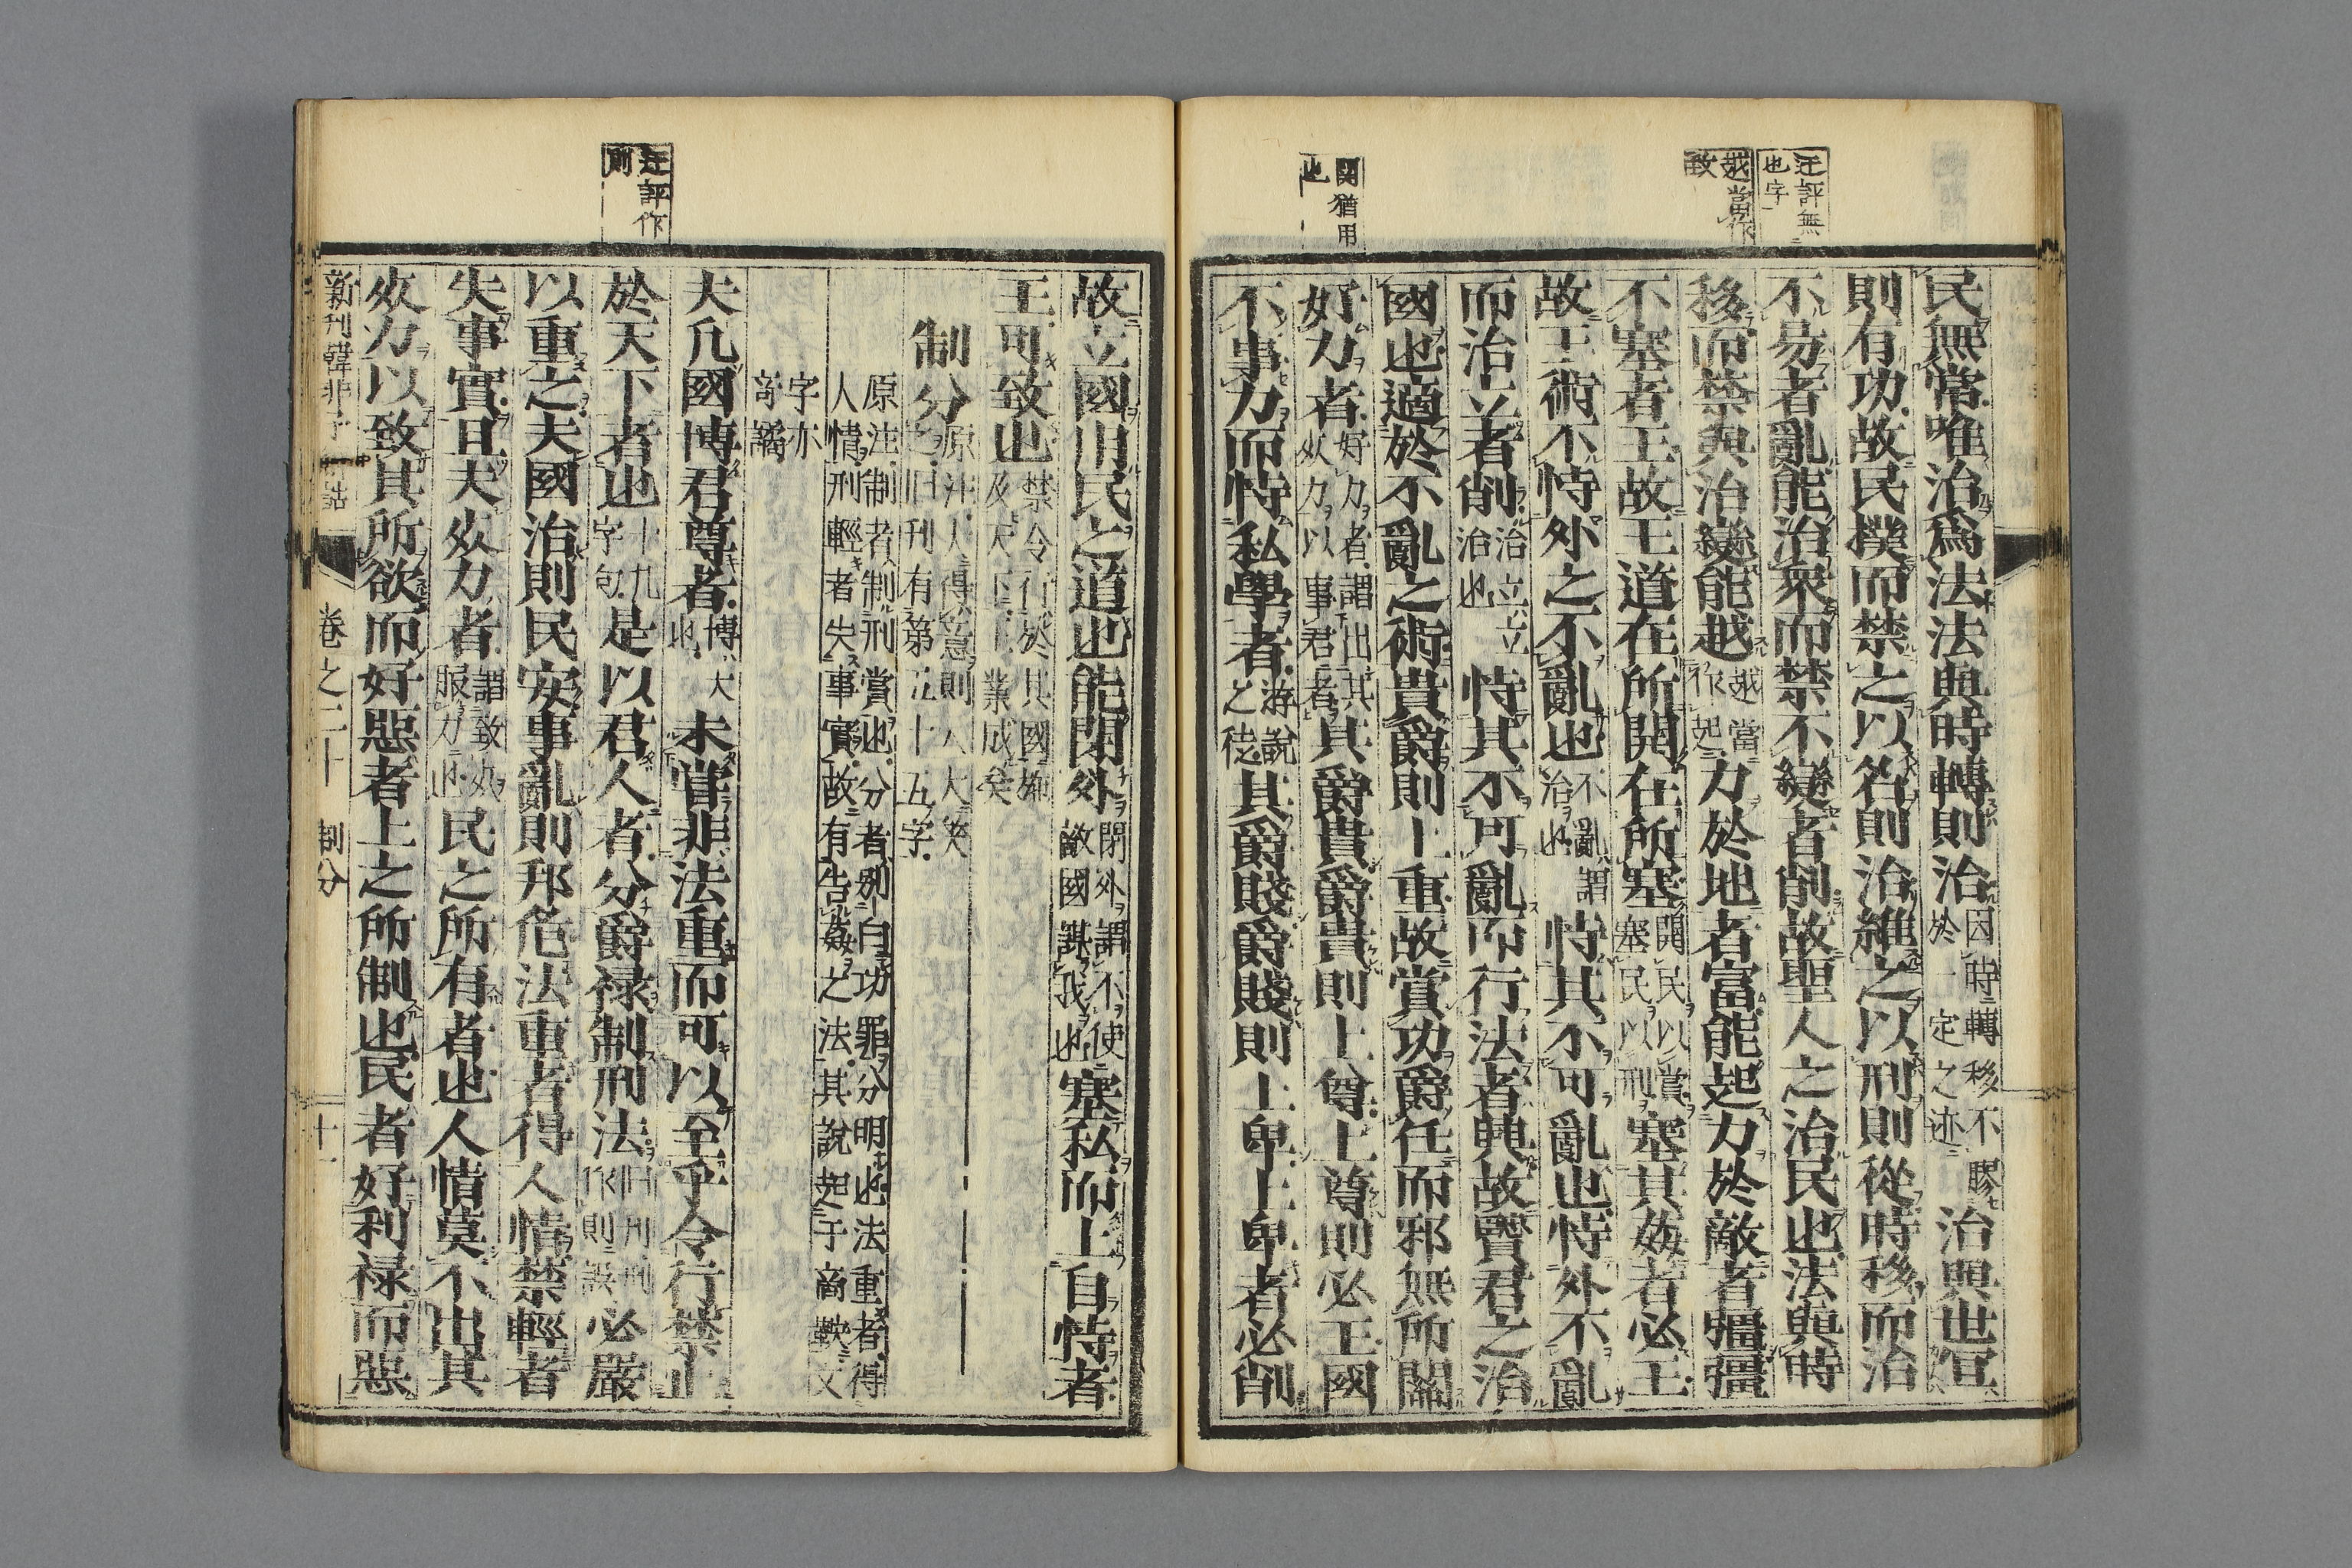 迂評無
也字
越當作
致
関猶用
也
民無常唯治為法法與時轉則治因時轉移不膠於一定之迹治與世宜
則有功故民撲而禁之以名則治維之以刑則從時移而治
不易者亂能治衆而禁不變者削故聖人之治民也法與時
移而禁與治變能越越當作起力於地者富能起力於敵者彊彊
不塞者王故王道在所開在所塞開民以賞塞民以刑塞其姦者必王
故王術不恃外之不亂也不亂謂治也恃其不可亂也恃外不亂
而治立者削治立立治也恃其不可亂而行法者興故賢君之治
國也適於不亂之術貴爵則上重故賞功爵任而邪無所關
好力者好力者謂出其死力以事君者其爵貴爵貴則上尊上尊則必王國
不事力而恃私學者游說之徒其爵賤爵賤則上卑上卑者必削
迂評作
則
故立國用民之道也能閉外閉外謂不使敵國謀我也塞私而上自恃者
王可致也禁令行於其國施及天下王業成矣
制分原注人得意則人大失之旧刊有第五十五字
原注制者制刑賞也分者別白功罪分明也法重者得
人情刑輕者失事實故有告姦之法其說起于商鞅文
字亦
商譎
夫凢國博君尊者博大也未嘗非法重而可以至乎令行禁止
於天下者也十九字句是以君人者分爵祿制刑法旧刊刑作則誤必嚴
以重之夫國治則民安事亂則邦危法重者得人情禁輕者
失事實且夫死力者謂致死服力也民之所有者也人情莫不出其
死力以致其所欲而好惡者上之所制也民者好利祿而惡
新刊韓非子 詁 卷之二十 制分 十一